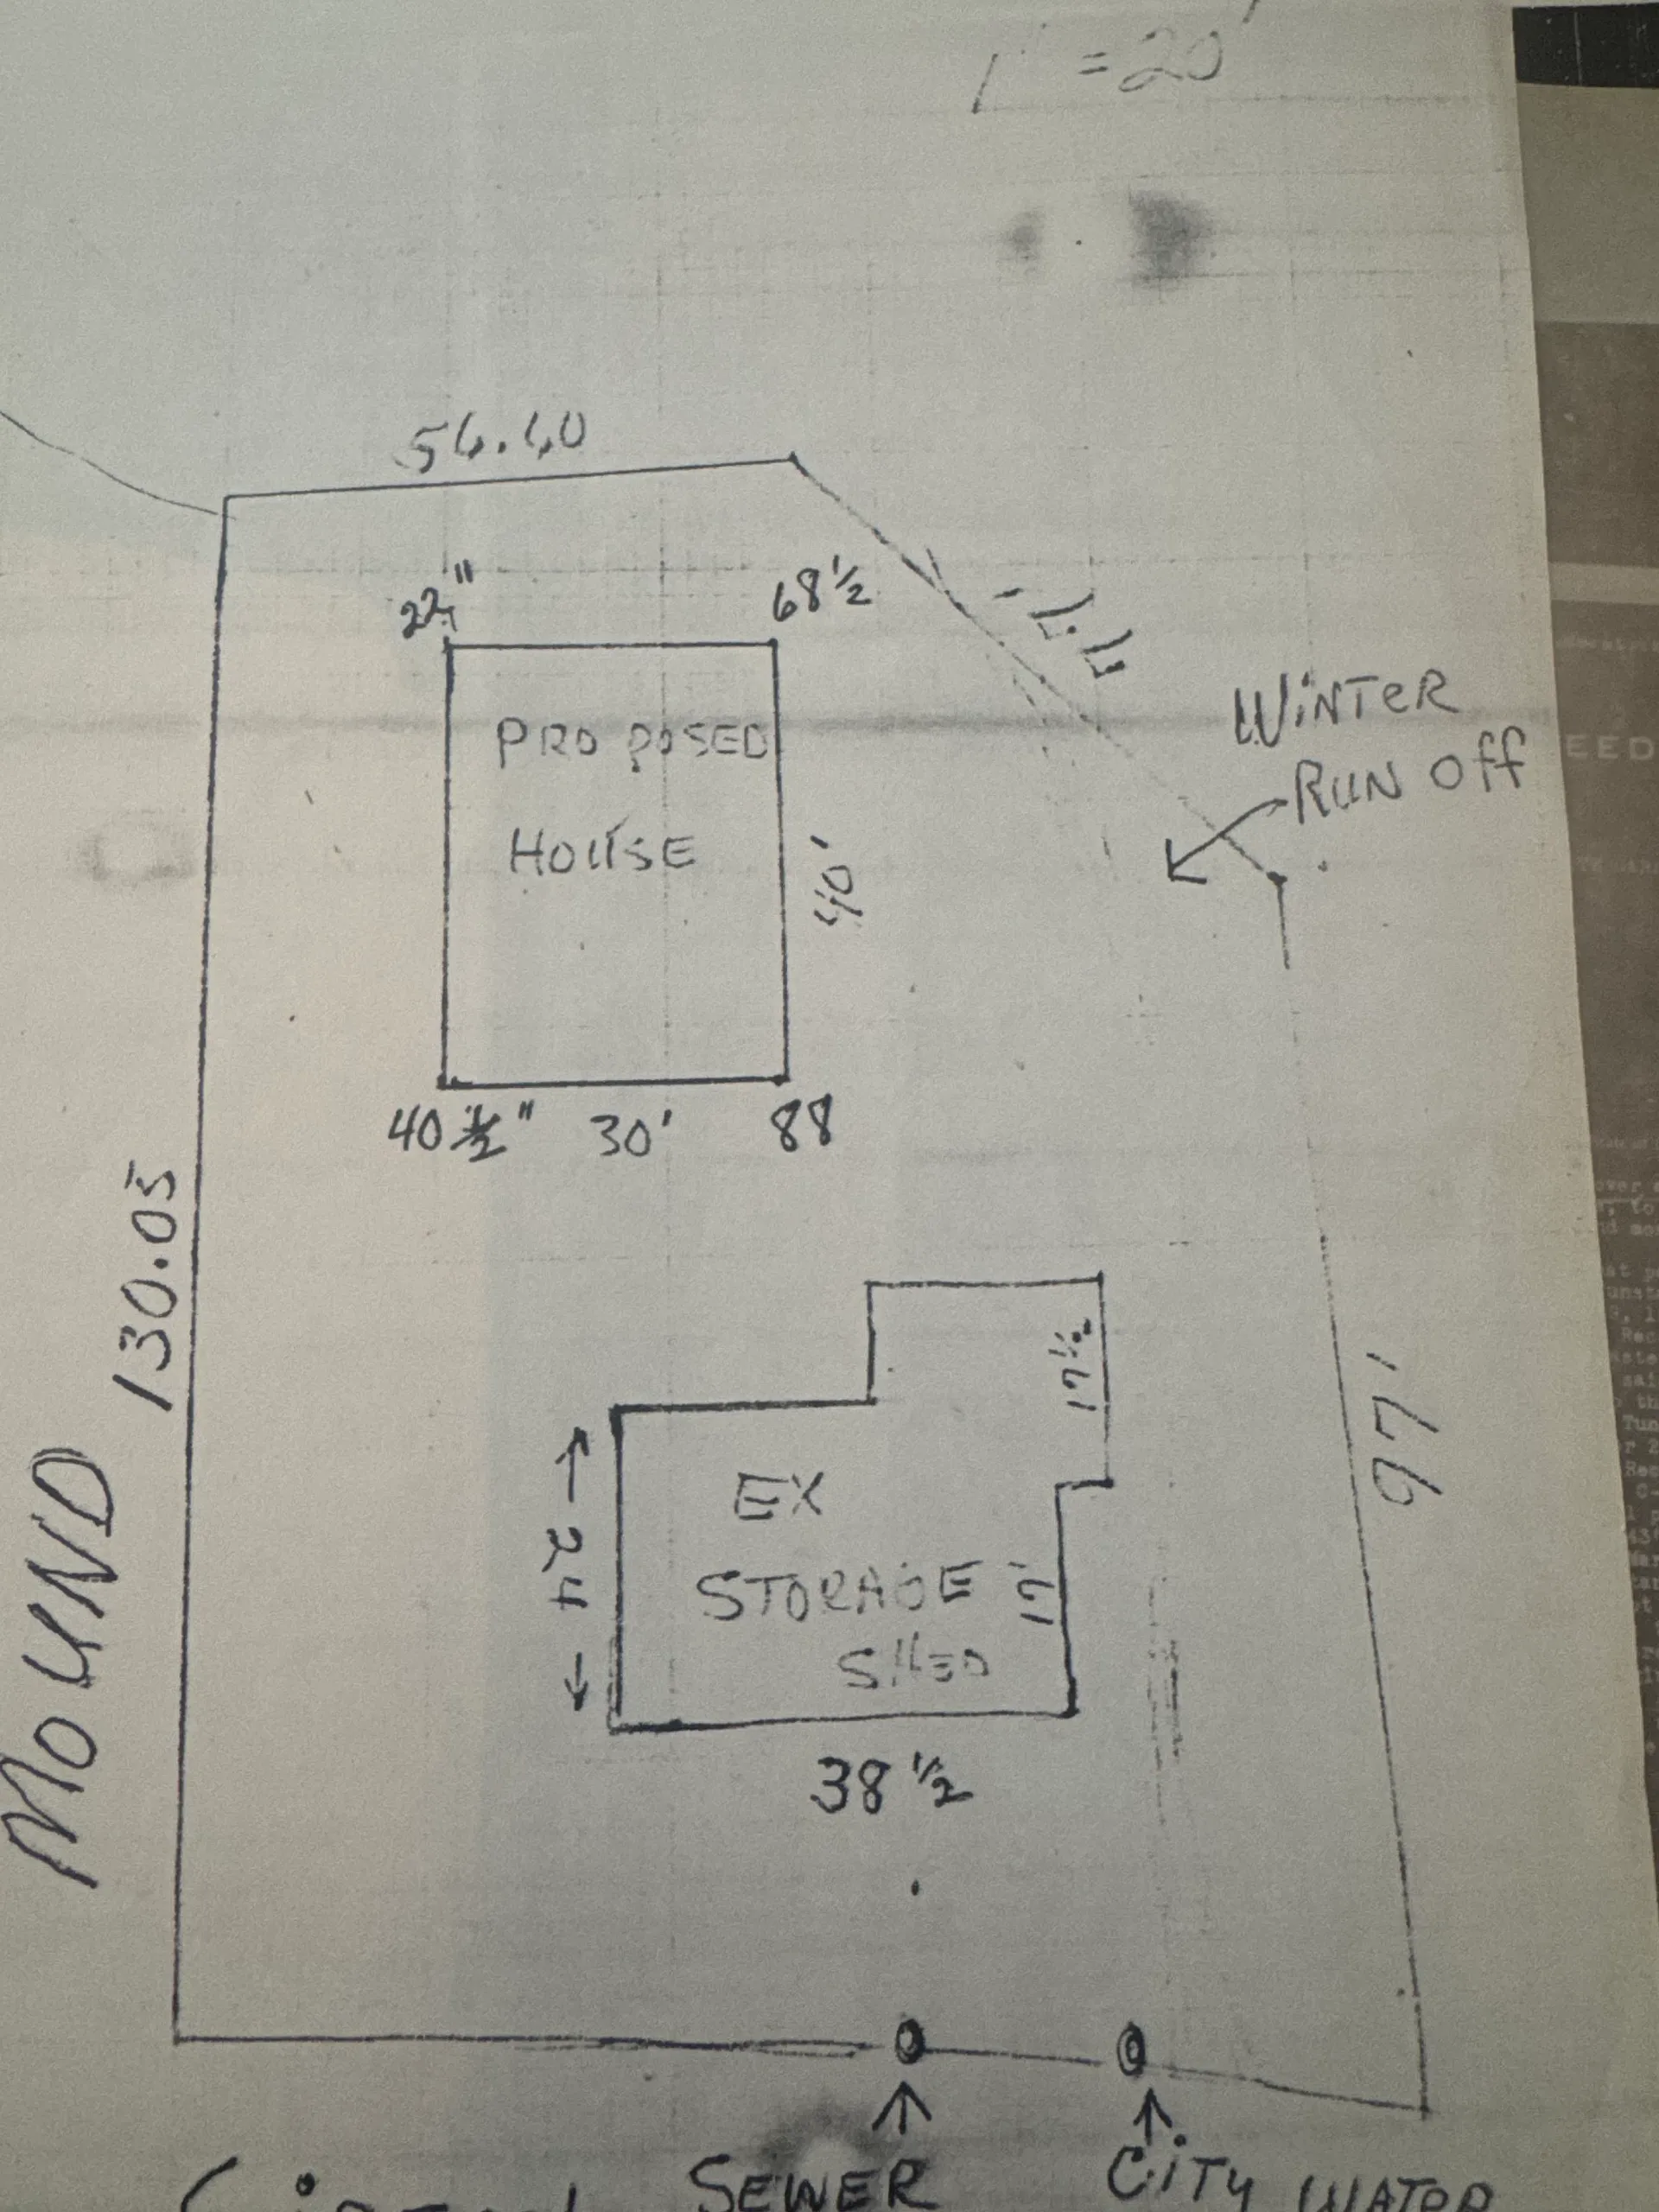 1" = 20'
22"
68 1/2
PROPOSED
HOUSE
40'
40 1/2"
30'
88
WINTER
RUN Off
130.05
MOUND
97'
17 1/2
24
EX
STORAGE
SHED
17'
38 1/2
SEWER
CITY WATER
EED